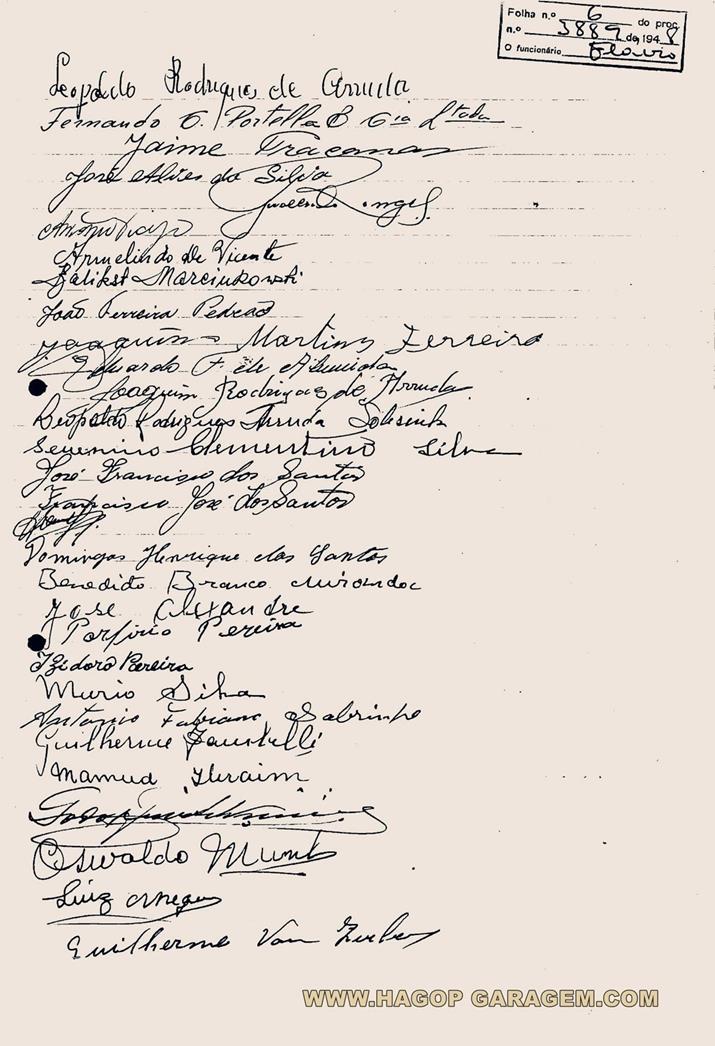 Folha n.º 6 do proc.
n.º 3889 de 1948
O funcionário Flavio
Leopoldo Rodrigues de Arruda
Fernando C. Portella & Cia Ltada
Jaime
José Alves da Silva
Armelindo De Vicente
Kalikst Marcinkowski
João Ferreira Pedrão
Joaquim Martins Ferreira
Eduardo F. de Almeida
Joaquim Rodrigues de Arruda
Leopoldo Rodrigues Arruda Sobrinho
Severino Clementino Silva
José Francisco dos Santos
Francisco José dos Santos
Domingos Henrique dos Santos
Benedido Branco Miranda
José Alexandre
Porfirio Pereira
Izidoro Pereira
Murio Silva
Antonio Fabiano Sobrinho
Guilherme
Mamud Ibraim
Oswaldo
Luiz
Guilherme Von
WWW.HAGOP GARAGEM.COM